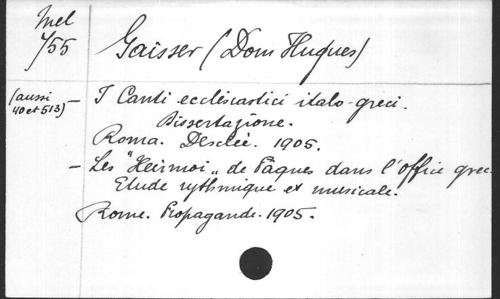 Mel
4/55
Gaisser (Dom Hugues)
(aussi
40 et 513) — I Canti ecclesiastici italo-greci.
Dissertazione.
Roma. Desclée. 1905.
— Les "Heirmoi" de Pâques dans l'office grec.
Etude rythmique et musicale.
Rome. Propagande. 1905.